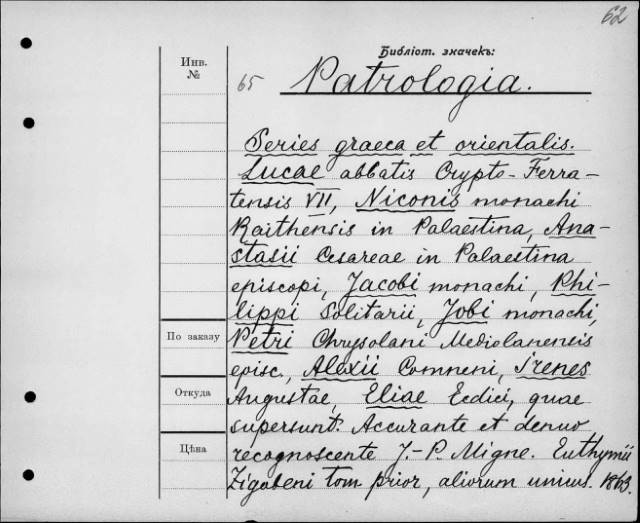 62
Библіот. значекъ:
Инв.
№
65
Patrologia.
Series graeca et orientalis.
Lucae abbatis Crypto-Ferra-
tensis VII, Niconis monachi
Raithensis in Palaestina, Ana-
stasii Cesareae in Palaestina
episcopi, Jacobi monachi, Phi-
lippi Solitarii, Jobi monachi,
По заказу
Petri Chrysolani Mediolanensis
episc., Alexii Comneni, Irenes
Откуда
Augustae, Eliae Ecdici, quae
supersunt. Accurante et denuo
Цѣна
recognoscente J.-P. Migne. Euthymii
Zigabeni tom. prior, aliorum unius. 1863.